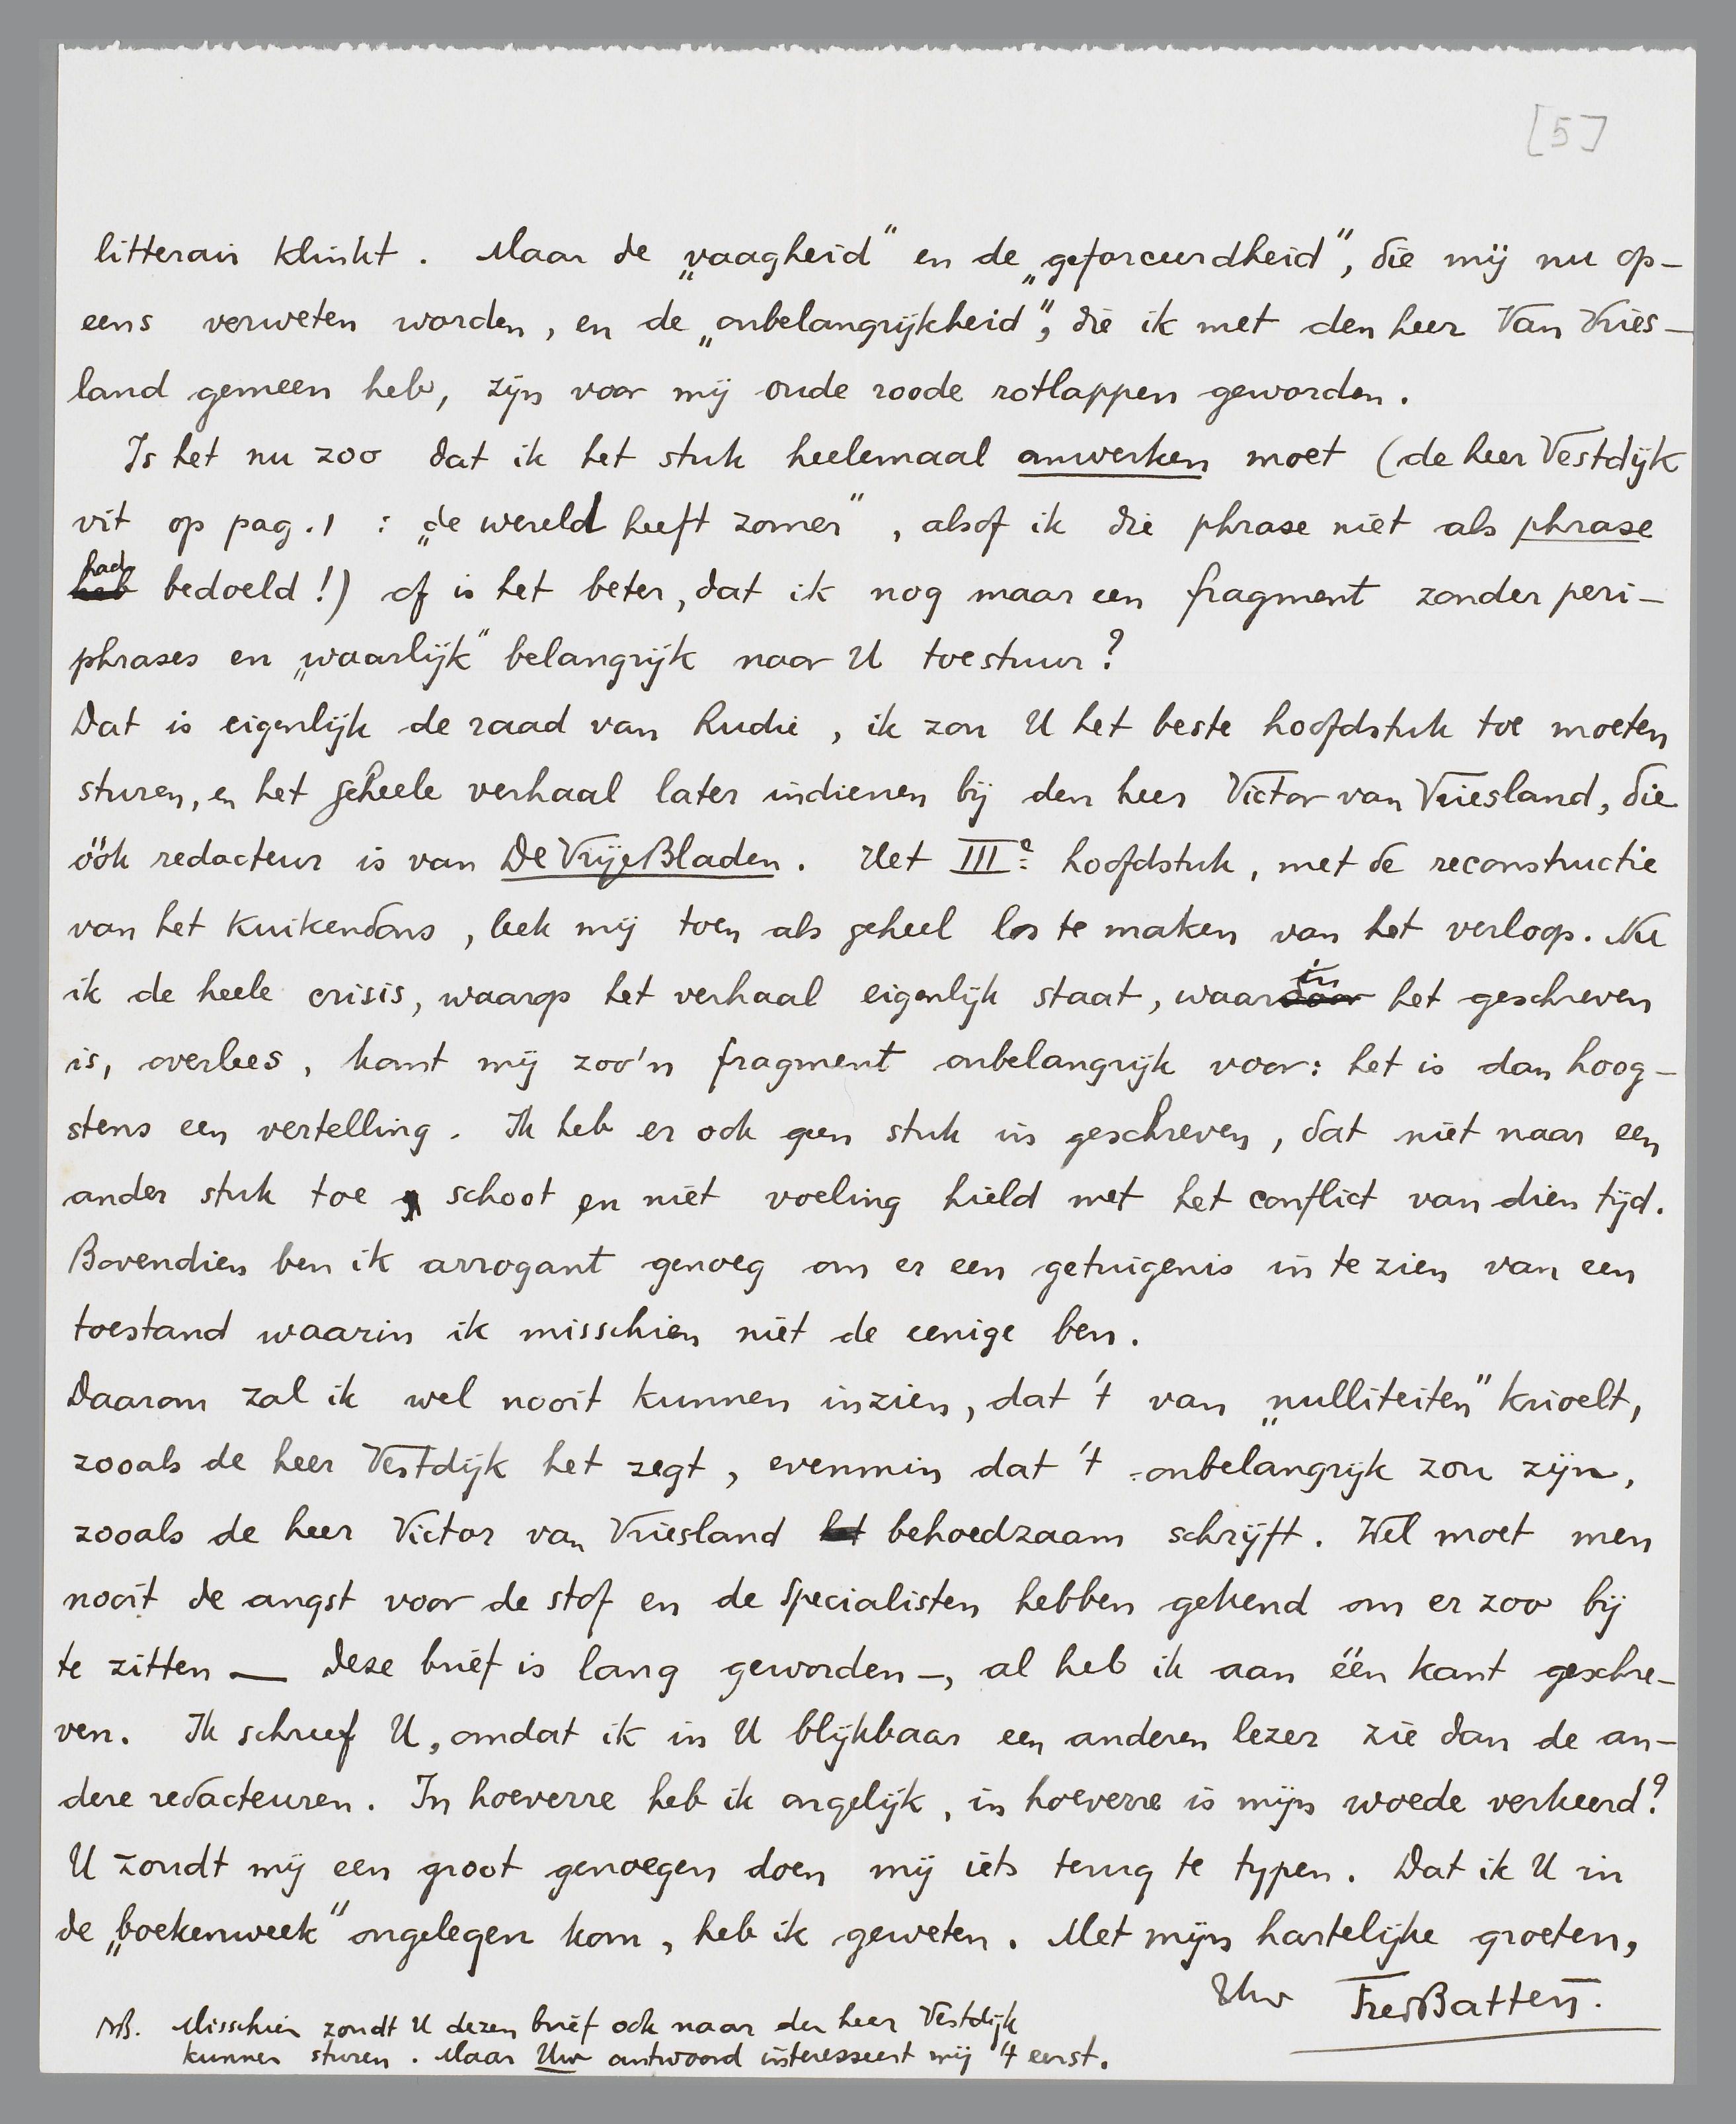 [5]
litterair klinkt. Maar de „vaagheid" en de „geforceerdheid", die mij nu op-
eens verweten worden, en de „onbelangrijkheid", die ik met den heer Van Vries-
land gemeen heb, zijn voor mij oude roode rotlappen geworden.
Is het nu zoo dat ik het stuk heelemaal omwerken moet (de heer Vestdijk
vit op pag. 1 : „de wereld heeft zomer", alsof ik die phrase niet als phrase
heb had bedoeld!) of is het beter, dat ik nog maar een fragment zonder peri-
phrases en „waarlijk" belangrijk naar U toestuur?
Dat is eigenlijk de raad van Rudie, ik zou U het beste hoofdstuk toe moeten
sturen, en het geheele verhaal later indienen bij den heer Victor van Vriesland, die
óók redacteur is van De Vrije Bladen. Het IIIe hoofdstuk, met de reconstructie
van het kuikendons, leek mij toen als geheel los te maken van het verloop. Nu
ik de heele crisis, waarop het verhaal eigenlijk staat, waardoor in het geschreven
is, overlees, komt mij zoo'n fragment onbelangrijk voor: het is dan hoog-
stens een vertelling. Ik heb er ook geen stuk in geschreven, dat niet naar een
ander stuk toe schoot en niet voeling hield met het conflict van dien tijd.
Bovendien ben ik arrogant genoeg om er een getuigenis in te zien van een
toestand waarin ik misschien niet de eenige ben.
Daarom zal ik wel nooit kunnen inzien, dat 't van „nulliteiten" krioelt,
zooals de heer Vestdijk het zegt, evenmin dat 't onbelangrijk zou zijn,
zooals de heer Victor van Vriesland het behoedzaam schrijft. Wel moet men
nooit de angst voor de stof en de specialisten hebben gekend om er zoo bij
te zitten — Deze brief is lang geworden —, al heb ik aan één kant geschre-
ven. Ik schreef U, omdat ik in U blijkbaar een anderen lezer zie dan de an-
dere redacteuren. In hoeverre heb ik ongelijk, in hoeverre is mijn woede verkeerd?
U zoudt mij een groot genoegen doen mij iets terug te typen. Dat ik U in
de „boekenweek" ongelegen kom, heb ik geweten. Met mijn hartelijke groeten,
Uw Fred Batten.
NB. Misschien zoudt U dezen brief ook naar den heer Vestdijk
kunnen sturen. Maar Uw antwoord interesseert mij 't eerst.